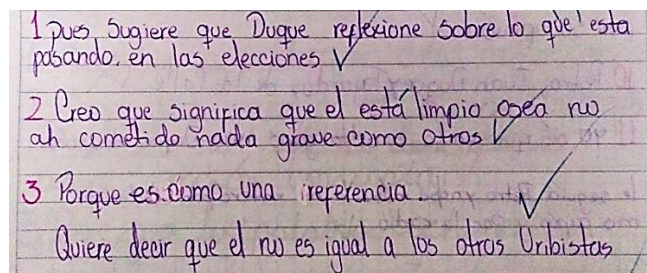 1 Pues, Sugiere que Duque reflexione sobre lo que esta
pasando. en las elecciones
2 Creo que significa que el está limpio osea no
ah cometido nada grave como otros
3 Porque es como una referencia.
Quiere decir que el no es igual a los otros Uribistas